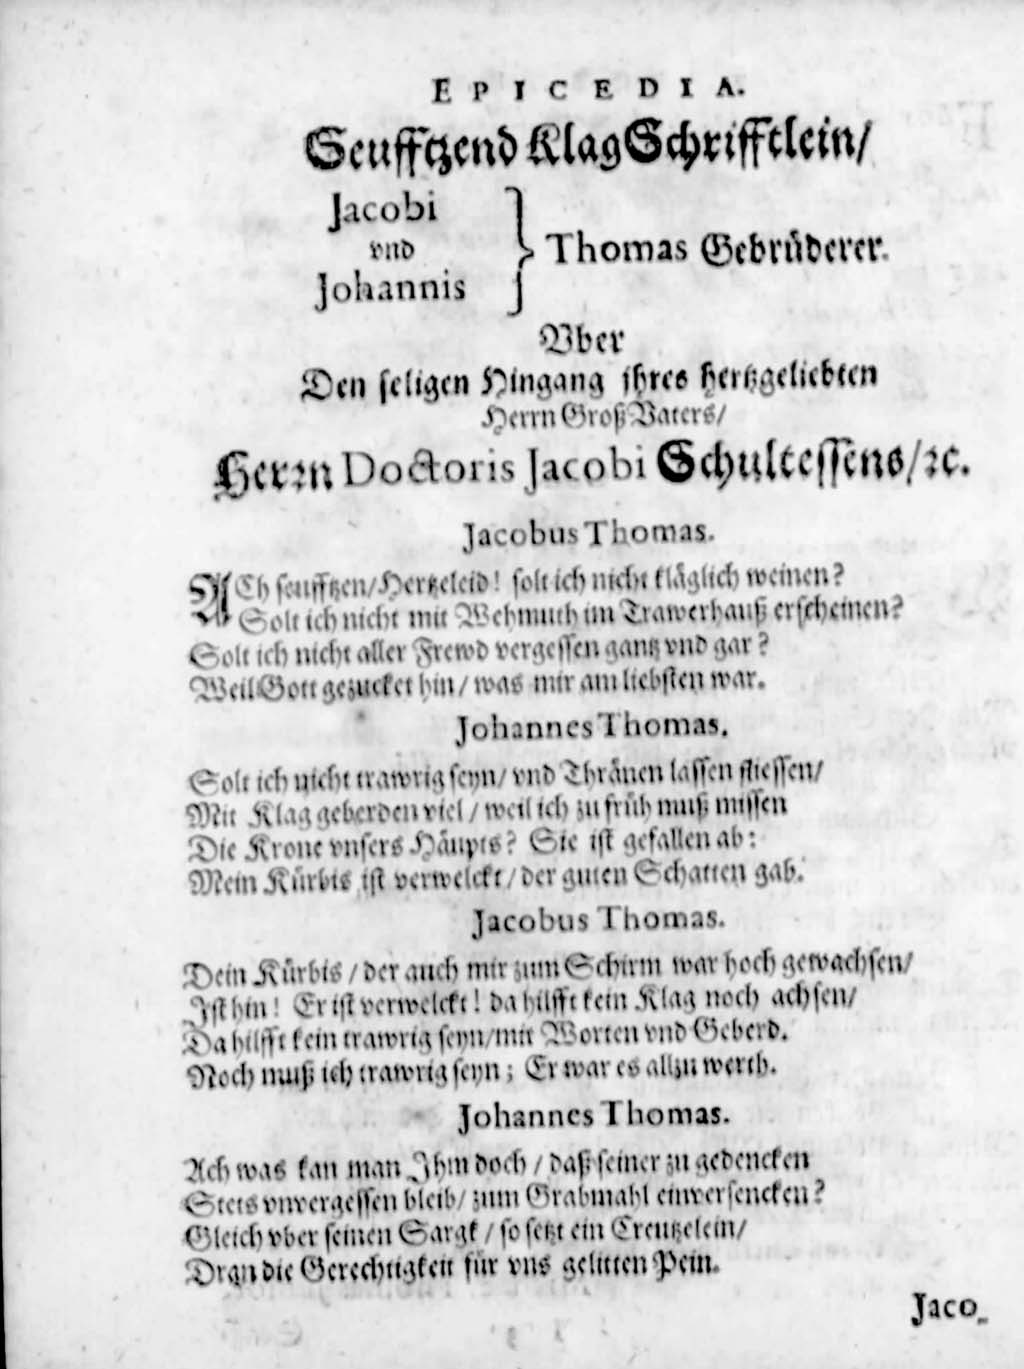 EPICEDIA.
Seufftzend KlagSchrifftlein/
Jacobi
vnd
Johannis
Thomas Gebrüderer.
Vber
Den seligen Hingang jhres hertzgeliebten
Herrn Groß Vaters/
Herꝛn Doctoris Jacobi Schultessens/ꝛc.
Jacobus Thomas.
ACh seufftzen/Hertzeleid! solt ich nicht kläglich weinen?
Solt ich nicht mit Wehmuth im Trawerhauß erscheinen?
Solt ich nicht aller Frewd vergessen gantz vnd gar?
Weil Gott gezucket hin/ was mir am liebsten war.
Johannes Thomas.
Solt ich nicht trawrig seyn/ vnd Thränen lassen fliessen/
Mit Klag geberden viel/ weil ich zu früh muß missen
Die Krone vnsers Häupts? Sie ist gefallen ab:
Mein Kürbis ist verwelckt/ der guten Schatten gab.
Jacobus Thomas.
Dein Kürbis/ der auch mir zum Schirm war hoch gewachsen/
Jst hin! Er ist verwelckt! da hilfft kein Klag noch achsen/
Da hilfft kein trawrig seyn/mit Worten vnd Geberd.
Noch muß ich trawrig seyn; Er war es allzu werth.
Johannes Thomas.
Ach was kan man Jhm doch/ daß seiner zu gedencken
Stets vnvergessen bleib/ zum Grabmahl einversencken?
Gleich vber seinen Sargk/ so setzt ein Creutzelein/
Dran die Gerechtigkeit für vns gelitten Pein.
Jaco-